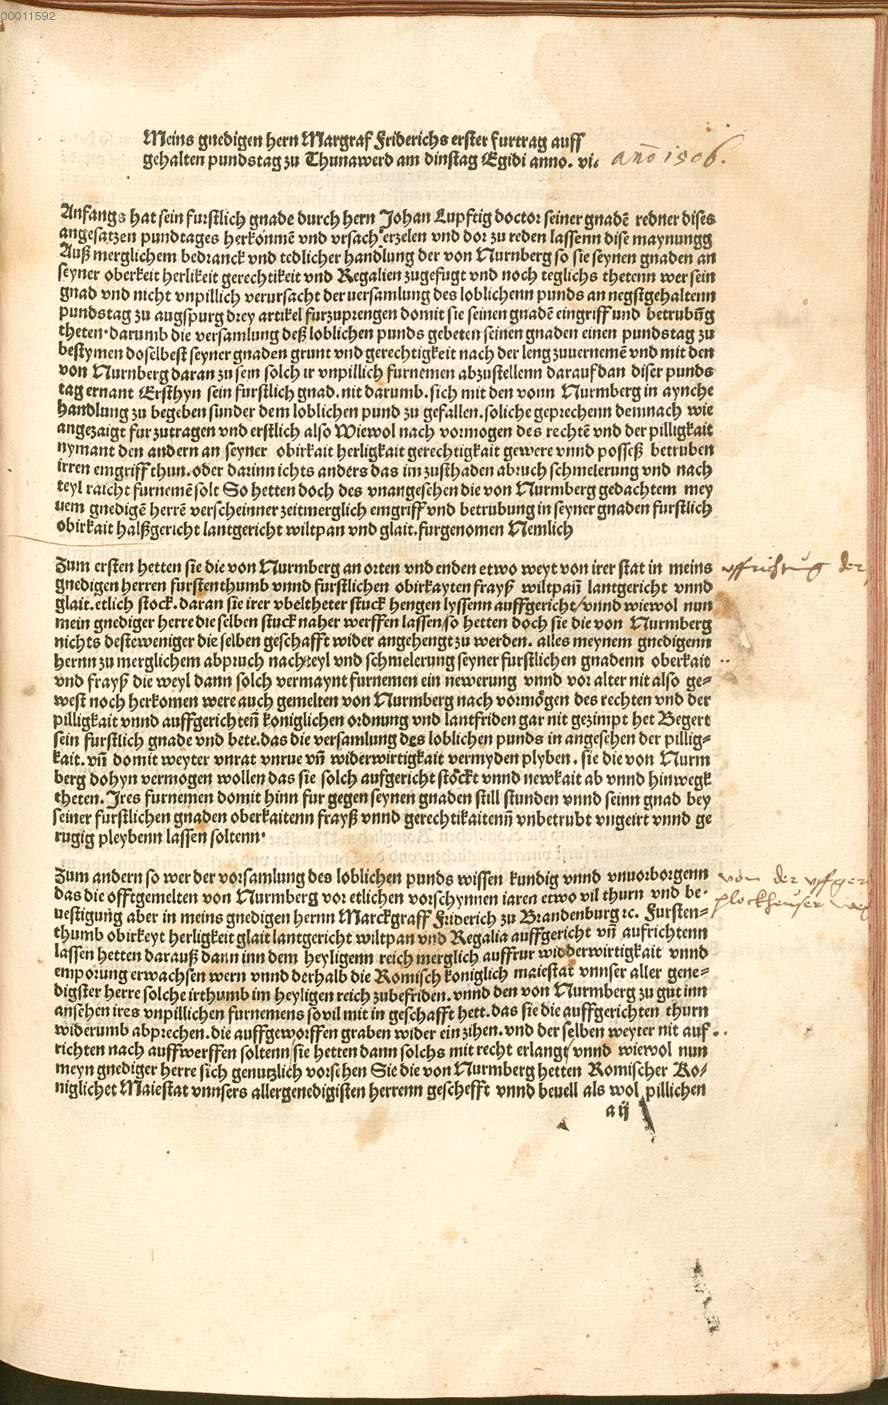 00011592
Meins gnedigen hern Margraf Friderichs erster furtrag auff
gehalten pundstag zu Thunawerd am dinstag Egidi anno. vic anno 1506.
Anfangs hat sein furstlich gnade durch hern Johan Lupftig doctor seiner gnadē redner dises
angesatzen pundtages herkōnmē vnd vrsach erzelen vnd dor zu reden lassenn dise maynungg
Auß merglichem bedranck vnd tedlicher handlung der von Nurnberg so sie seynen gnaden an
seyner oberkeit herlikeit gerechtikeit vnd Regalien zugefugt vnd noch teglichs thetenn wer sein
gnad vnd nicht vnpillich verursacht der versamlung des loblichenn punds an negstgehaltenn
pundstag zu augspurg drey artikel furzuprengen domit sie seinen gnadē eingriff und betrubūg
theten·darumb die versamlung deß loblichen punds gebeten seinen gnaden einen pundstag zu
bestymen doselbest seyner gnaden grunt vnd gerechtigkeit nach der leng zuuernemē vnd mit den
von Nurnberg daran zu sein solch ir vnpillich furnemen abzustellenn darauf dan diser punds
tag ernant Ersthyn sein furstlich gnad. nit darumb. sich mit den vonn Nurmberg in aynche
handlung zu begeben sunder dem loblichen pund zu gefallen. soliche geprechenn demnach wie
angezaigt fur zutragen vnd erstlich also Wiewol nach vormogen des rechtē vnd der pilligkait
nymant den andern an seyner obirkait herligkait gerechtigkait gewere vnnd posseß betruben
irren eingriff thun. oder darinn ichts anders das im zusthaden abruch schmelerung vnd nach
teyl raicht furnemē solt So hetten doch des vnangesehen die von Nurmberg gedachtem mey
nem gnedigē herrē verscheinner zeit merglich eingriff vnd betrubung in seyner gnaden furstlich
obirkait halßgericht lantgericht wiltpan vnd glait. furgenomen Nemlich
Zum ersten hetten sie die von Nurmberg an orten vnd enden etwo weyt von irer stat in meins
gnedigen herren furstenthumb vnnd furstlichen obirkayten frayß wiltpañ lantgericht vnnd
glait. etlich stock. daran sie irer vbeltheter stuck hengen lyssenn auffgericht/vnnd wiewol nun
mein gnediger herre die selben stuck naher werffen lassen/so hetten doch sie die von Nurmberg
nichts desteweniger die selben geschafft wider angehengt zu werden. alles meynem gnedigenn
hernn zu merglichem abpruch nachteyl vnd schmelerung seyner furstlichen gnadenn oberkait
vnd frayß die weyl dann solch vermaynt furnemen ein newerung vnnd vor alter nit also ge⸗
west noch herkomen were auch gemelten von Nurmberg nach vormögen des rechten vnd der
pilligkait vnnd auffgerichteñ koniglichen ordnung vnd lantfriden gar nit gezimpt het Begert
sein furstlich gnade vnd bete. das die versamlung des loblichen punds in angesehen der pillig⸗
kait. vñ domit weyter vnrat vnrue vñ widerwirtigkait vermyden plyben. sie die von Nurm
berg dohyn vermogen wollen das sie solch aufgericht stöckt vnnd newkait ab vnnd hinwegk
theten. Ires furnemen domit hinn fur gegen seynen gnaden still stunden vnnd seinn gnad bey
seiner furstlichen gnaden oberkaitenn frayß vnnd gerechtikaitenñ vnbetrubt vngeirt vnnd ge
rugig pleybenn lassen soltenn·
Zum andern so wer der vorsamlung des loblichen punds wissen kundig vnnd vnuorborgenn
das die offtgemelten von Nurmberg vor etlichen vorschynnen iaren etwo vil thurn vnd be·
uestigung aber in meins gnedigen hernn Marckgraff Friderich zu Brandenburg ꝛc. Fursten⸗
thumb obirkeyt herligkeit glait lantgericht wiltpan vnd Regalia auffgericht vñ aufrichtenn
lassen hetten darauß dann inn dem heyligenn reich merglich auffrur widderwirtigkait vnnd
emporung erwachsen wern vnnd derhalb die Romisch koniglich maiestat vnnser aller gene⸗
digster herre solche irthumb im heyligen reich zubefriden. vnnd den von Nurmberg zu gut inn
ansehen ires vnpillichen furnemens so vil mit in geschafft hett. das sie die auffgerichten thurn
widerumb abprechen. die auffgeworffen graben wider ein zihen. vnd der selben weyter nit auf
richten nach auffwerffen soltenn/sie hetten dann solchs mit recht erlangt/vnnd wiewol nun
meyn gnediger herre sich genutzlich vorsehen Sie die von Nurmberg hetten Romischer Ko⸗
niglichet Maiestat vnnsers allergenedigisten herrenn geschefft vnnd beuell als wol pillichen
a ij